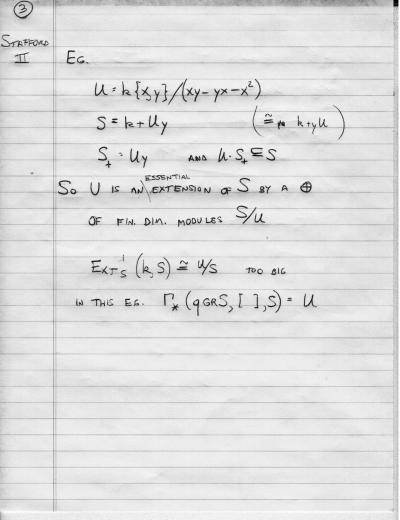 3
STAFFORD
II
EG.
U = k{x,y}/(xy-yx-x²)
S = k+Uy (≅ k+yU)
S₊ = Uy AND U·S₊ ⊆ S
SO U IS AN ESSENTIAL EXTENSION OF S BY A ⊕
OF FIN. DIM. MODULES S/U
EXT¹_S (k, S) ≅ U/S TOO BIG
IN THIS EG. Γ_* (qGRS, [ ], S) = U